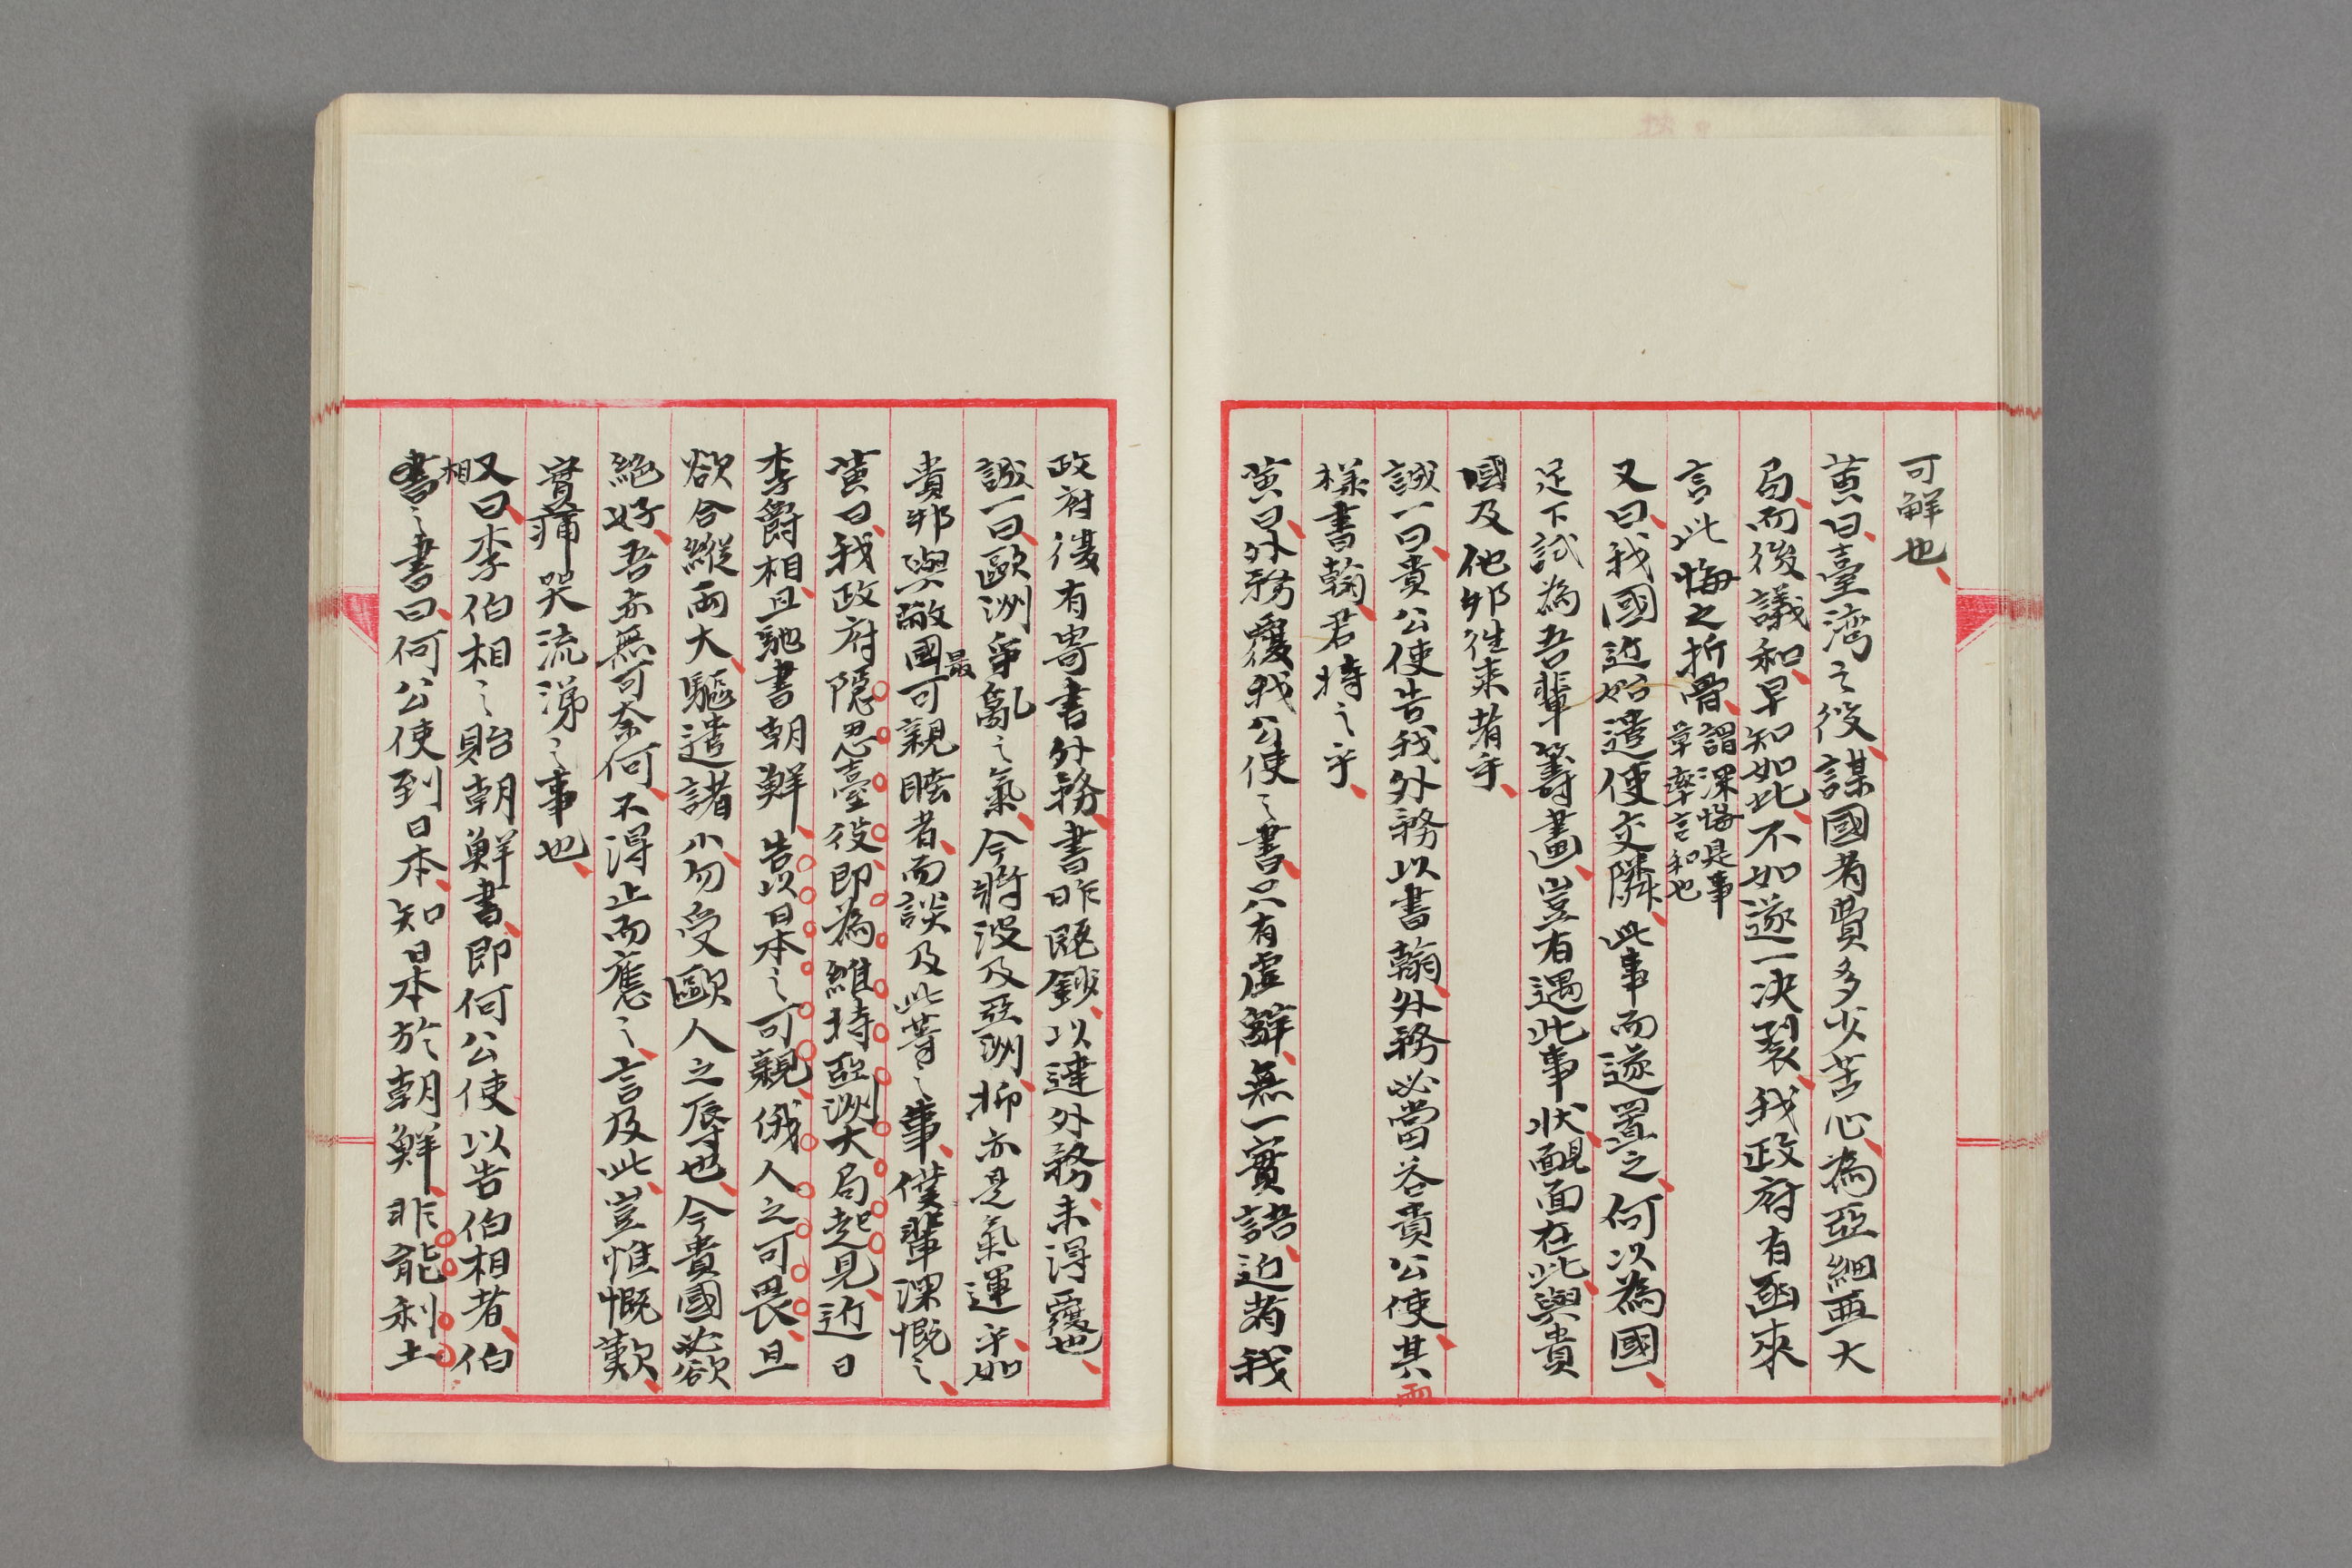 可解也、
黄曰、臺湾之役、謀國者費多少苦心、為亞細亜大
局、而後議和、早知如此、不如遂一決裂、我政府有函來
言此悔之折骨、謂深悔是事
草率言和也
又曰、我國近始遣使交隣、此事而遂置之、何以為國、
足下試為吾輩籌畫、豈有遇此事状、靦面在此、與貴
國及他邦往来者乎、
誠一曰、貴公使告我外務以書翰、外務必當答貴公使、其
両
様書翰、君持之乎、
黄曰、外務覆我公使之書、只有虚辞、無一實語、近者我
政府復有寄書外務、書昨既鈔、以達外務、未得覆也、
誠一曰、歐洲爭亂之氣、今將波及亞洲、抑亦是氣運乎、如
貴邦與敝國最可親睦者、而談及此等之事、僕輩深慨之、
黄曰、我政府隠忍臺役、即為維持亞洲大局起見、近日
李爵相、且馳書朝鮮、告以日本之可親、俄人之可畏、且
欲合縦両大、驅遣諸小、勿受歐人之辱也、今貴國必欲
絶好、吾亦無可奈何、不得止而應之、言及此、豈惟慨歎、
實痛哭流涕之事也、
又曰、李伯相之貽朝鮮書、即何公使以告伯相者、伯
相
書之書曰、何公使到日本、知日本於朝鮮、非能利土